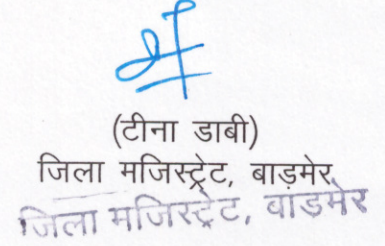 (टीना डाबी)
जिला मजिस्ट्रेट, बाड़मेर
जिला मजिस्ट्रेट, बाडमेर